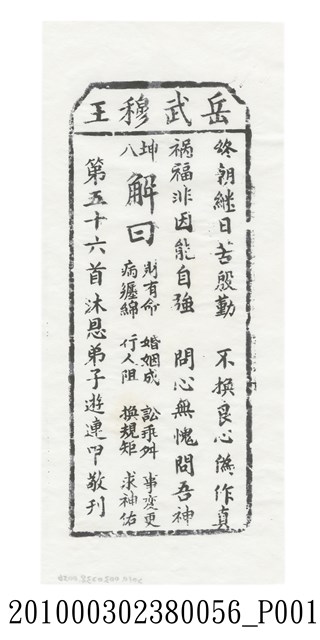 岳武穆王
終朝繼日苦殷勤 不換良心偽作真
禍福非因能自強 問心無愧問吾神
坤八 解曰 財有命 婚姻成 訟乖舛 事變更
病纏綿 行人阻 換規矩 求神佑
第五十六首沐恩弟子游連叩敬刊
201000302380056_P001